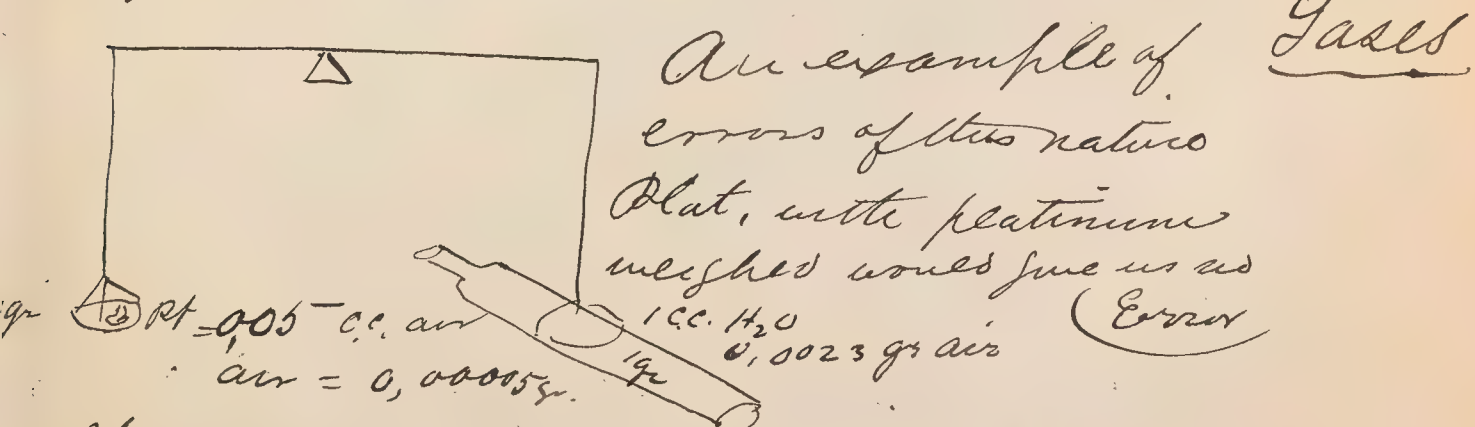 Gases
An example of
errors of this nature
Plat, with platinum
weighed would give us no
Error
gr Pt = 0,05 c.c. air
air = 0,00005 gr.
1 gr
1 c.c. H2O
0,0023 gr air